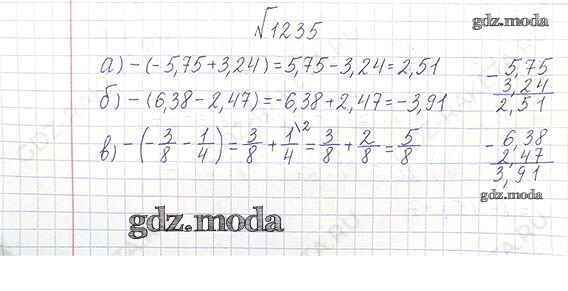 √1235
gdz.moda
а) -(-5,75+3,24)=5,75-3,24=2,51
б) -(6,38-2,47)=-6,38+2,47=-3,91
в) -(-3/8-1/4)=3/8+1/4\2=3/8+2/8=5/8
-5,75
3,24
2,51
-6,38
2,47
3,91
gdz.moda
gdz.moda